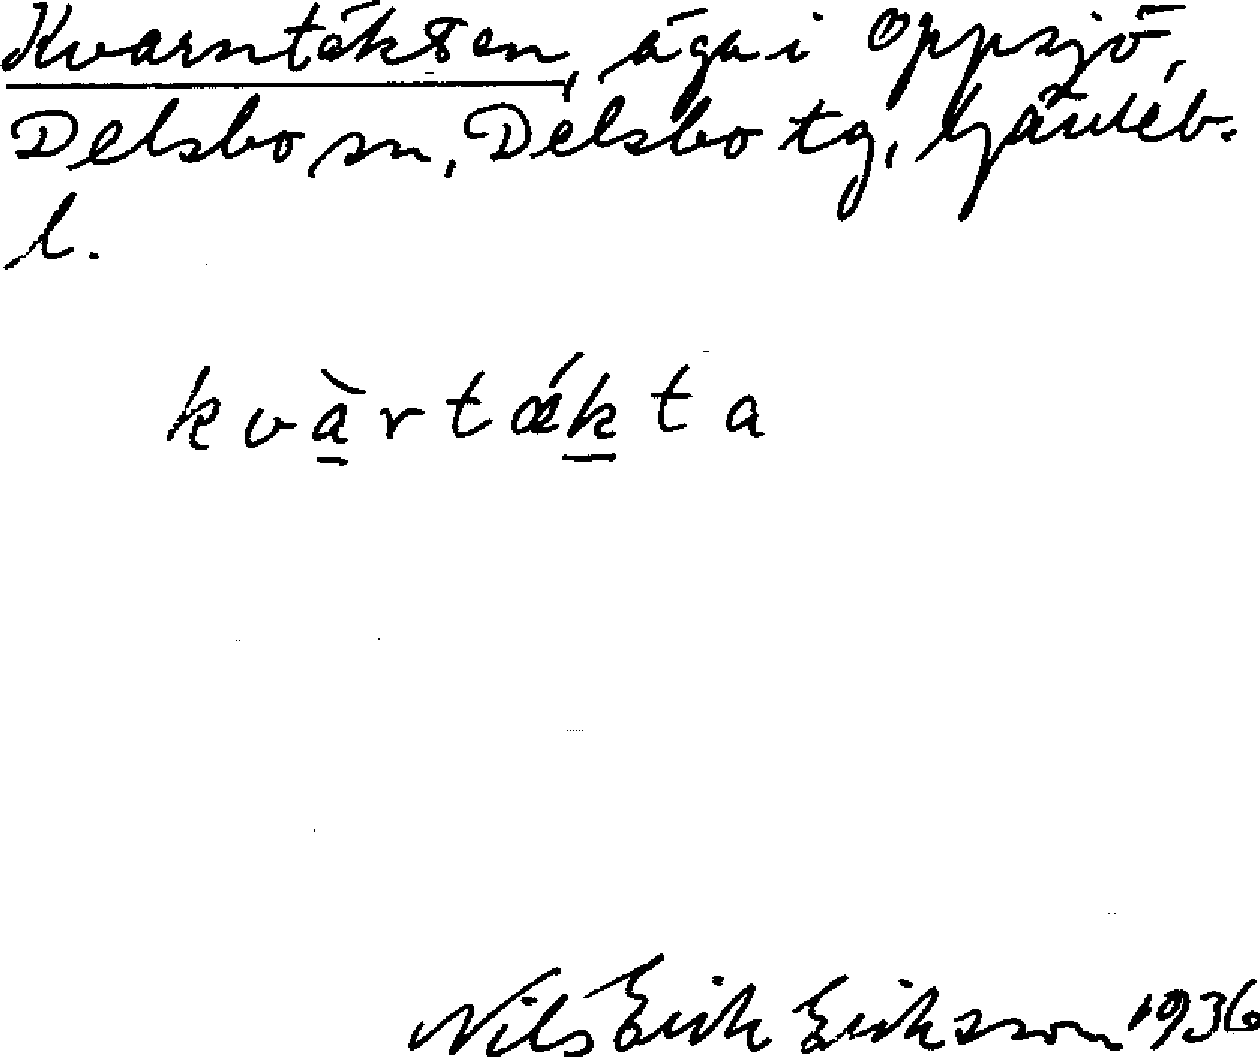 Kvarntäkten, äga i Oppsjö,
Delsbo sn, Delsbo tg, Gävleb.
l.
kvàrtǽkta
Nils Erik Eriksson 1936